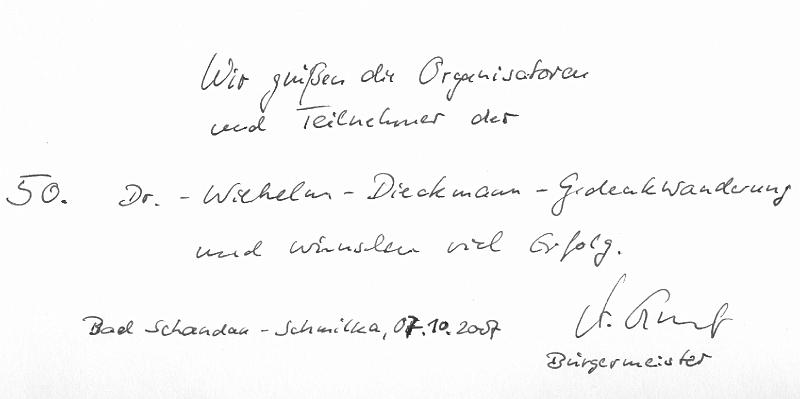 Wir grüßen die Organisatoren
und Teilnehmer der
50. Dr. - Wilhelm - Dieckmann - Gedenkwanderung
und wünschen viel Erfolg.
Bad Schandau - Schmilka, 07.10.2007
Bürgermeister